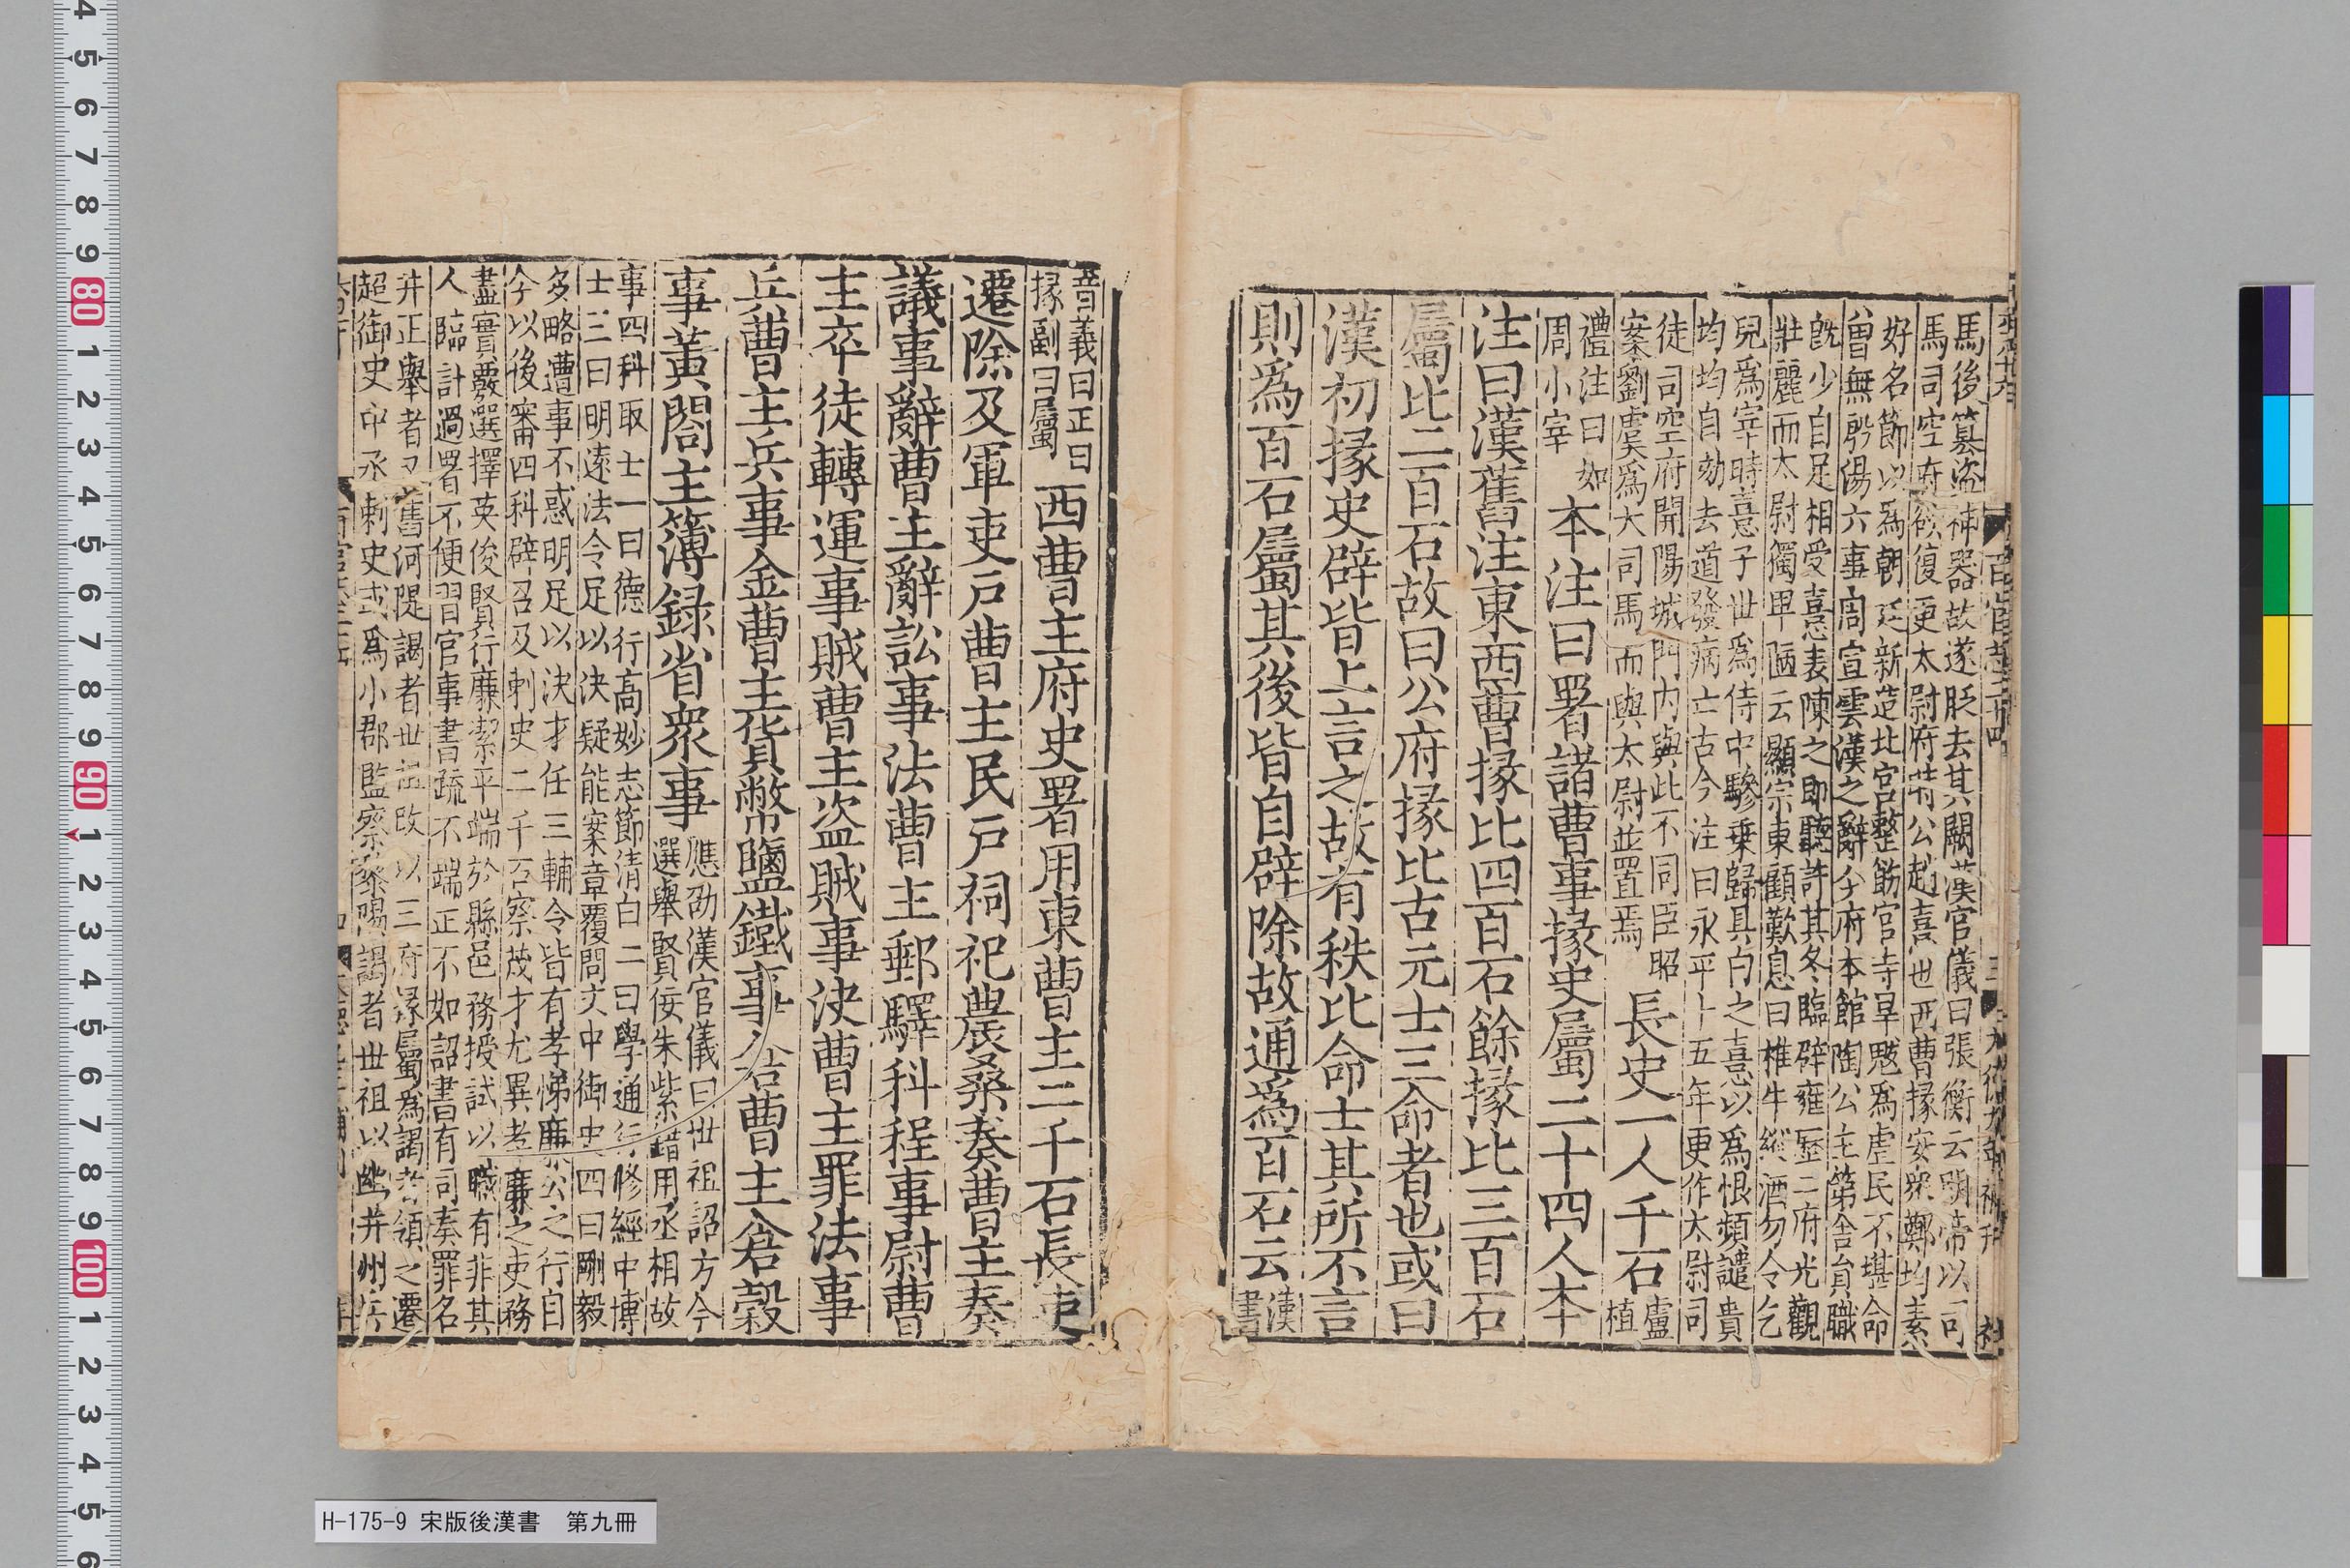 百官志二十四
三
馬後篡盜神器故遂貶去其闕漢官儀曰張衡云明帝以司
馬司空府欲復更太尉府時公趙憙也西曹掾安衆鄭均素
好名節以爲朝廷新造北宮整飭官寺旱魃爲虐民不堪命
曾無殷湯六事周宣雲漢之辭今府本館陶公主第舍員職
旣少自足相受憙表陳之卽聽許其冬臨辟雍歷二府光觀
壯麗而太尉獨卑陋云顯宗東顧歎息曰椎牛縱酒勿令乞
兒爲宰時憙子世爲侍中驂乗歸具白之憙以爲恨頻譴貴
均均自劾去道發病亡古今注曰永平十五年更作太尉司
徒司空府開陽城門内與此不同臣昭
案劉虞爲大司馬而與太尉並置焉
長史一人千石
盧
植
禮注曰如
周小宰
本注曰署諸曹事掾史屬二十四人本
注曰漢舊注東西曹掾比四百石餘掾比三百石
屬比二百石故曰公府掾比古元士三命者也或曰
漢初掾史辟皆上言之故有秩比命士其所不言
則爲百石屬其後皆自辟除故通爲百石云
漢
書
音義曰正曰
掾副曰屬
西曹主府史署用東曹主二千石長吏
遷除及軍吏戶曹主民戶祠祀農桑奏曹主奏
議事辭曹主辭訟事法曹主郵驛科程事尉曹
主卒徒轉運事賊曹主盜賊事決曹主罪法事
兵曹主兵事金曹主貨幣鹽鐵事倉曹主倉穀
事黃閤主簿録省衆事
應劭漢官儀曰世祖詔方今
選舉賢佞朱紫錯用丞相故
事四科取士一曰德行高妙志節清白二曰學通行修經中博
士三曰明達法令足以決疑能案章覆問文中御史四曰剛毅
多略遭事不惑明足以決才任三輔令皆有孝悌廉公之行自
今以後審四科辟召及刺史二千石察茂才尤異孝廉之吏務
盡實覈選擇英俊賢行廉潔平端於縣邑務授試以職有非其
人臨計過署不便習官事書疏不端正不如詔書有司奏罪名
并正舉者又舊河隄謁者世祖改以三府掾屬爲謁者領之遷
超御史中丞刺史或爲小郡監察黎陽謁者世祖以幽并州兵
H-175-9 宋版後漢書 第九冊